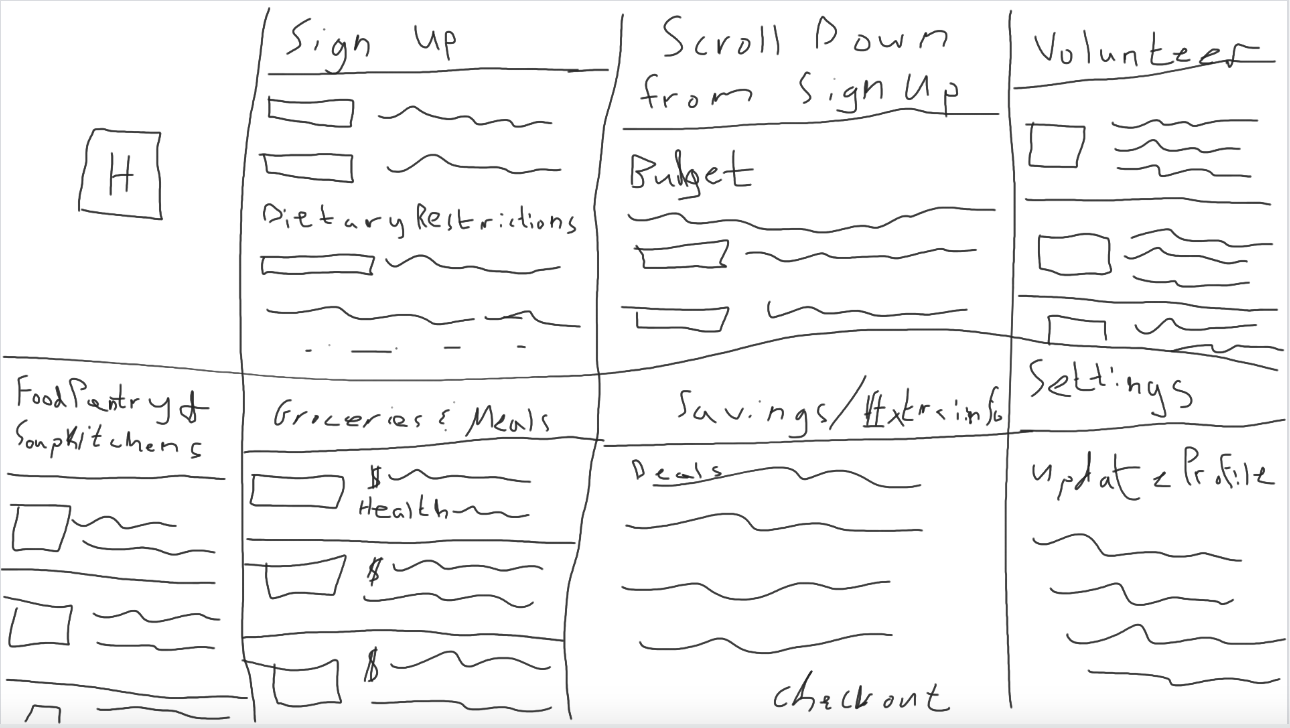 H
Sign Up
Dietary Restrictions
Scroll Down
from Sign Up
Budget
Volunteer
Food Pantry &
Soup Kitchens
Groceries & Meals
$
Health
$
$
Savings/Extra info
Deals
checkout
Settings
Update Profile